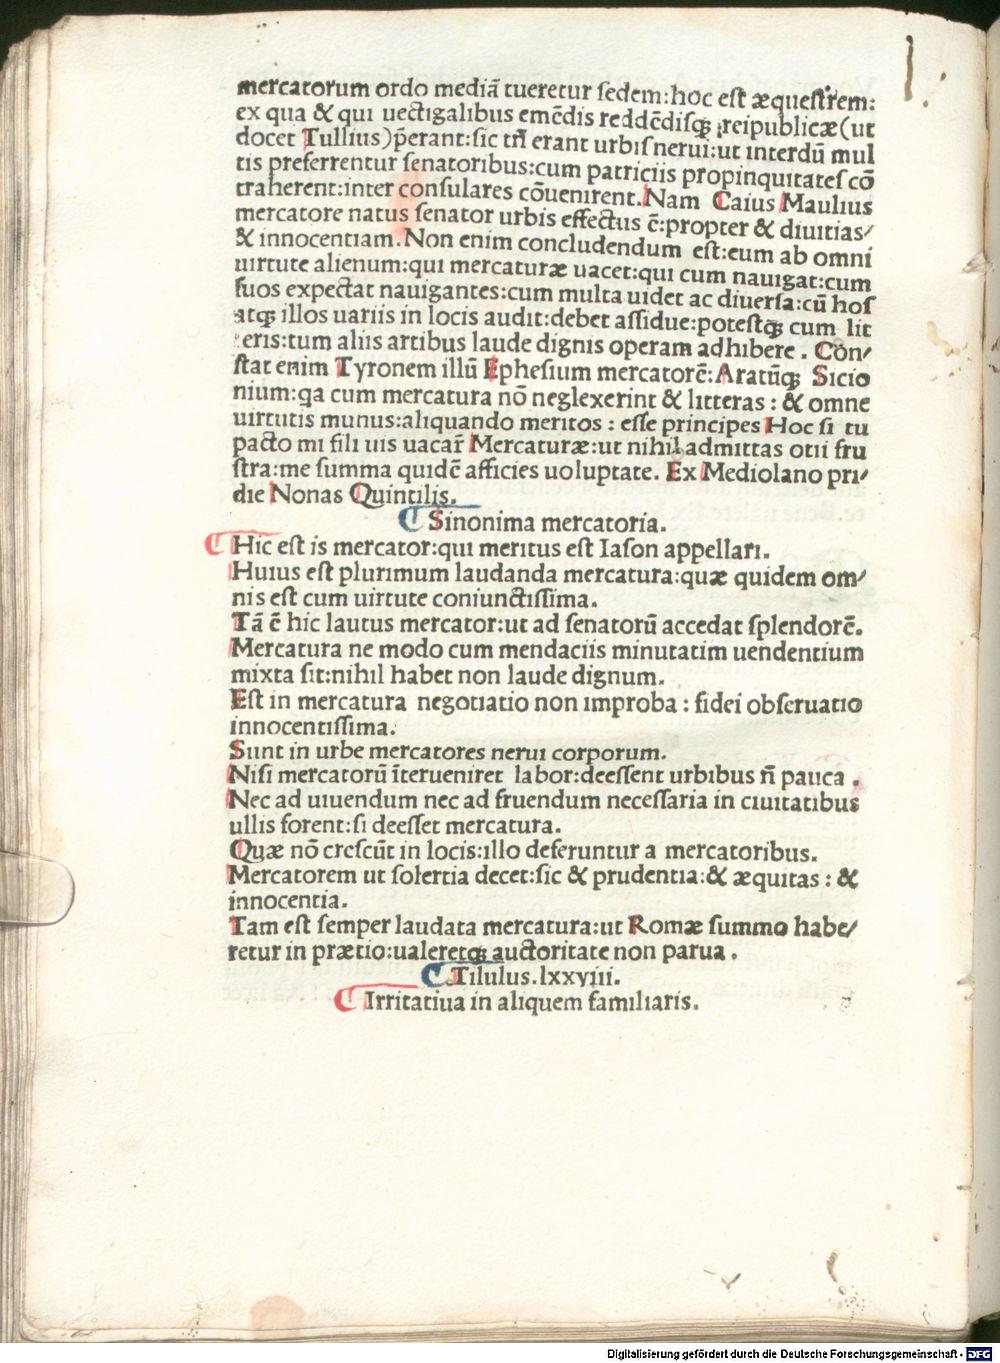 mercatorum ordo mediā tueretur ſedem:hoc eſt æqueſtrem:
ex qua & qui uectigalibus emēdis reddēdiſqꝫ reipublicæ(ut
docet Tullius)p̄erant:ſic tn̄ erant urbiſ nerui:ut interdū mul
tis preferrentur ſenatoribus:cum patriciis propinquitateſ cō
traherent:inter conſulares cōuenirent.Nam Caius Maulius
mercatore natus ſenator urbis effectus ē:propter & diuitias/
& innocentiam.Non enim concludendum eſt:eum ab omni
uirtute alienum:qui mercaturæ uacet:qui cum nauigat:cum
ſuos expectat nauigantes:cum multa uidet ac diuerſa:cū hoſ
atqꝫ illos uariis in locis audit:debet aſſidue:poteſtqꝫ cum lit
eris:tum aliis artibus laude dignis operam adhibere . Con/
ſtat enim Tyronem illū Epheſium mercatorē:Aratūqꝫ Sicio
nium:qa cum mercatura nō neglexerint & litteras : & omne
uirtutis munus:aliquando meritos : eſſe principes Hoc ſi tu
pacto mi fili uis uacar̄ Mercaturæ:ut nihil admittas otii fru
ſtra:me ſumma quidē afficies uoluptate. Ex Mediolano pri/
die Nonas Quintilis.
Sinonima mercatoria.
Hic eſt is mercator:qui meritus eſt Iaſon appellari.
Huius eſt plurimum laudanda mercatura:quæ quidem om/
nis eſt cum uirtute coniunctiſſima.
Tā ē hic lautus mercator:ut ad ſenatorū accedat ſplendorē.
Mercatura ne modo cum mendaciis minutatim uendentium
mixta ſit:nihil habet non laude dignum.
Eſt in mercatura negotiatio non improba : fidei obſeruatio
innocentiſſima.
Sunt in urbe mercatores nerui corporum.
Niſi mercatorū īterueniret labor:deeſſent urbibus n̄ pauca .
Nec ad uiuendum nec ad fruendum neceſſaria in ciuitatibus
ullis forent:ſi deeſſet mercatura.
Quæ nō creſcūt in locis:illo deferuntur a mercatoribus.
Mercatorem ut ſolertia decet:ſic & prudentia:& æquitas : &
innocentia.
Tam eſt ſemper laudata mercatura:ut Romæ ſummo habe/
retur in prætio:ualeretqꝫ auctoritate non parua .
Tilulus.lxxviii.
Irritatiua in aliquem familiaris.
Digitalisierung gefördert durch die Deutsche Forschungsgemeinschaft - DFG